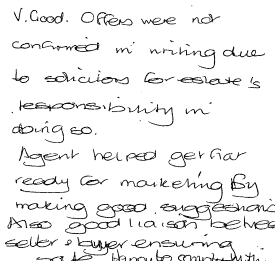 V. Good. Offers were not
confirmed in writing due
to solicitors for estate's
responsibility in
doing so.
Agent helped get flat
ready for marketing by
making good suggestions
Also good liaison between
seller & buyer ensuring
happy to comply with